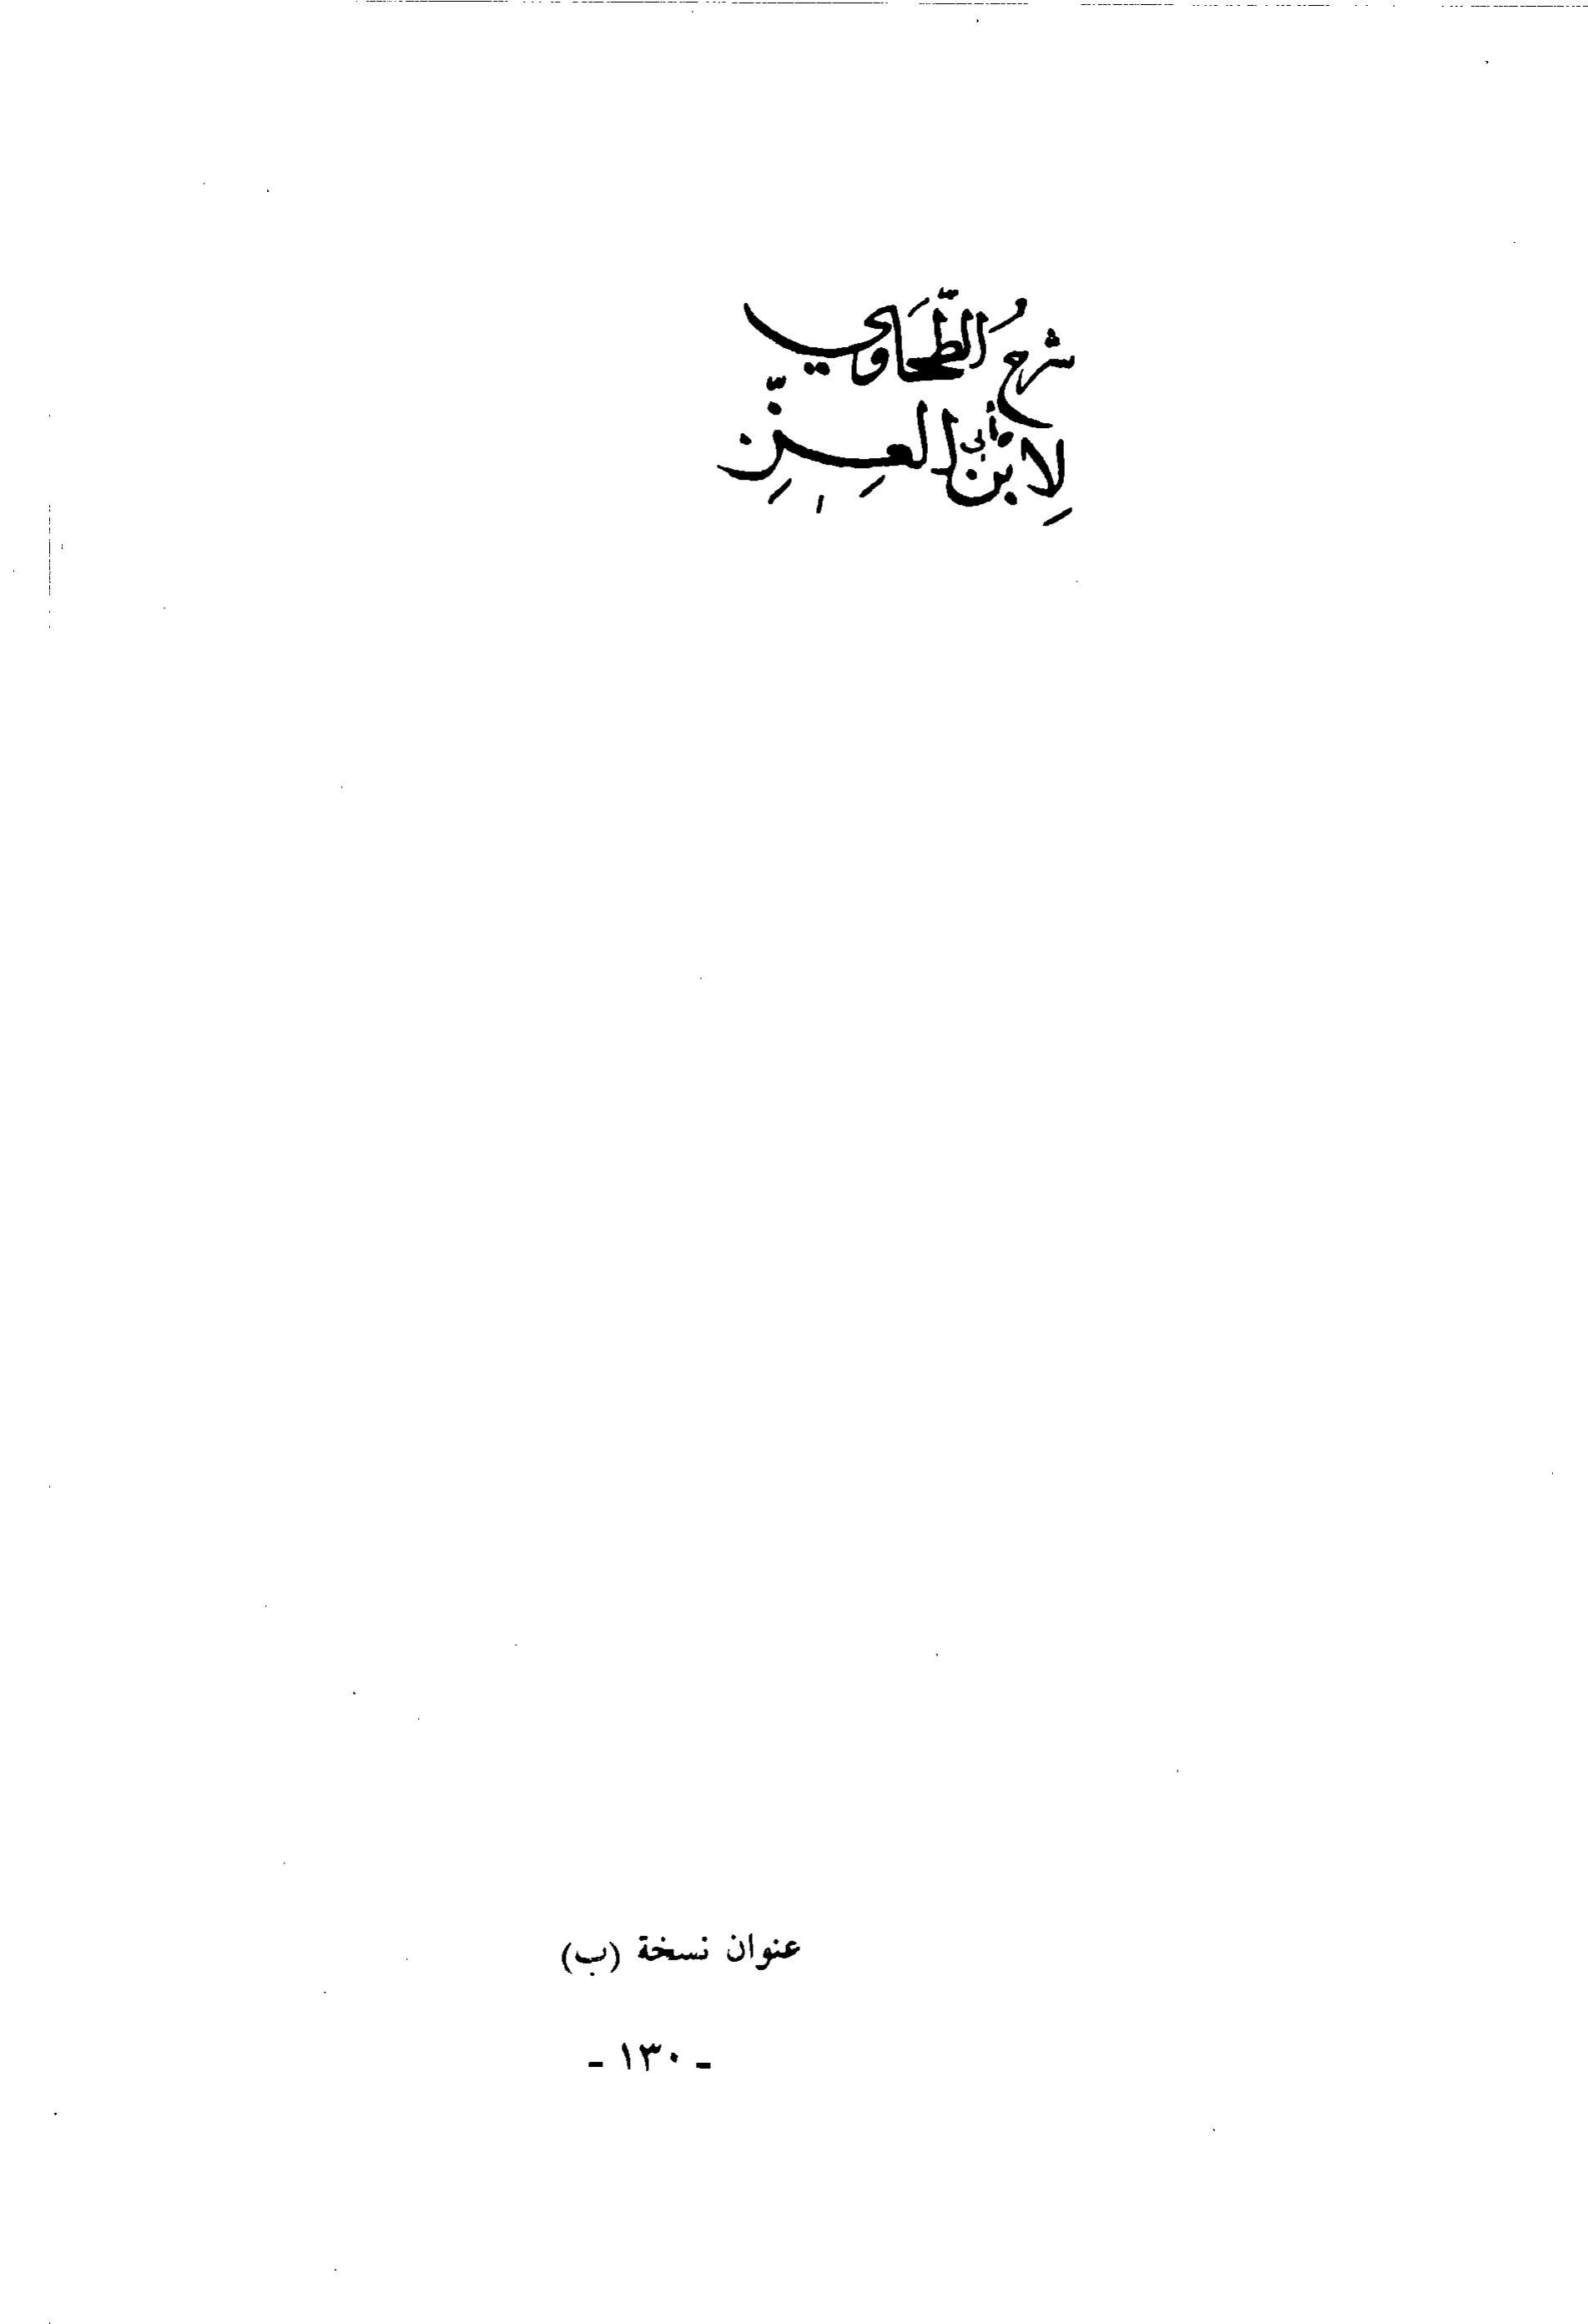 شرحُ الطّحَاوي
لِابن أبي العِزِّ
عنوان نسخة (ب)
- ١٣٠ -